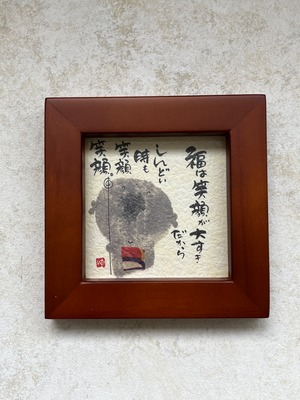 福は笑顔が
大すき
だから
しんどい
時も
笑顔
笑顔。